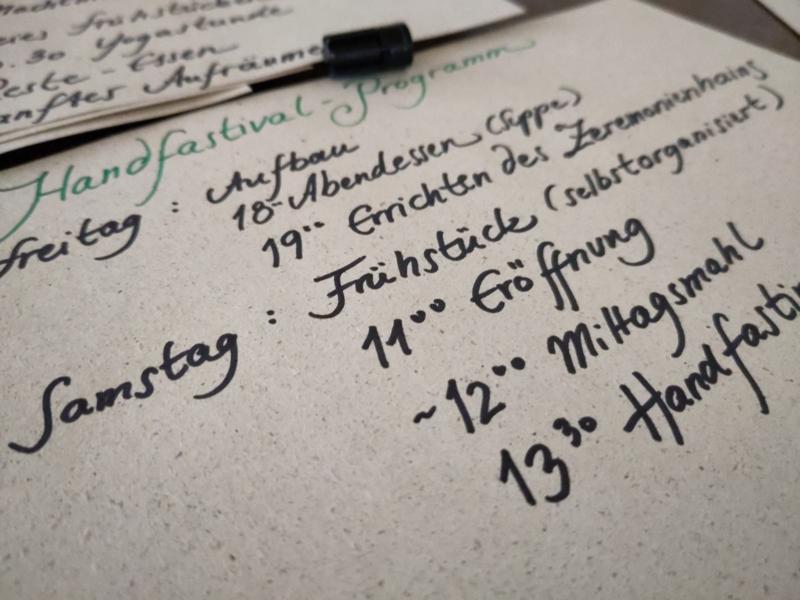 Frühstück
30 Yogastunde
Reste-Essen
sanftes Aufräumen
Handfastival-Programm
Freitag : Aufbau
18°° Abendessen (Suppe)
19°° Errichten des Zeremonienhains
Samstag : Frühstück (selbstorganisiert)
11°° Eröffnung
~12°° Mittagsmahl
13³⁰ Handfasti